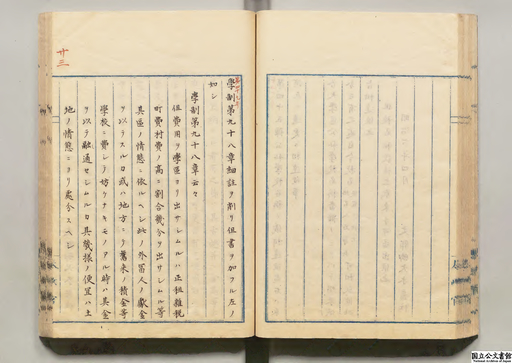 学制第九十八章細註ヲ刪リ但書ヲ加フル左ノ
如シ
学制第九十八章云々
但費用ヲ学区ヨリ出サシムルハ正租雑税
町費村費ノ高ニ割合幾分ヲ出サシムル等
其区ノ情態ニ依ルヘシ此ノ外富人ノ献金
ヲ以テスルカ或ハ地方ニテ旧来ノ積金等
学校ニ費シテ妨ケナキモノアル時ハ其金
ヲ以テ融通セシムルカ其幾様ノ便宜ハ土
地ノ情態ニヨリ処分スヘシ
廿三
国立公文書館
National Archives of Japan